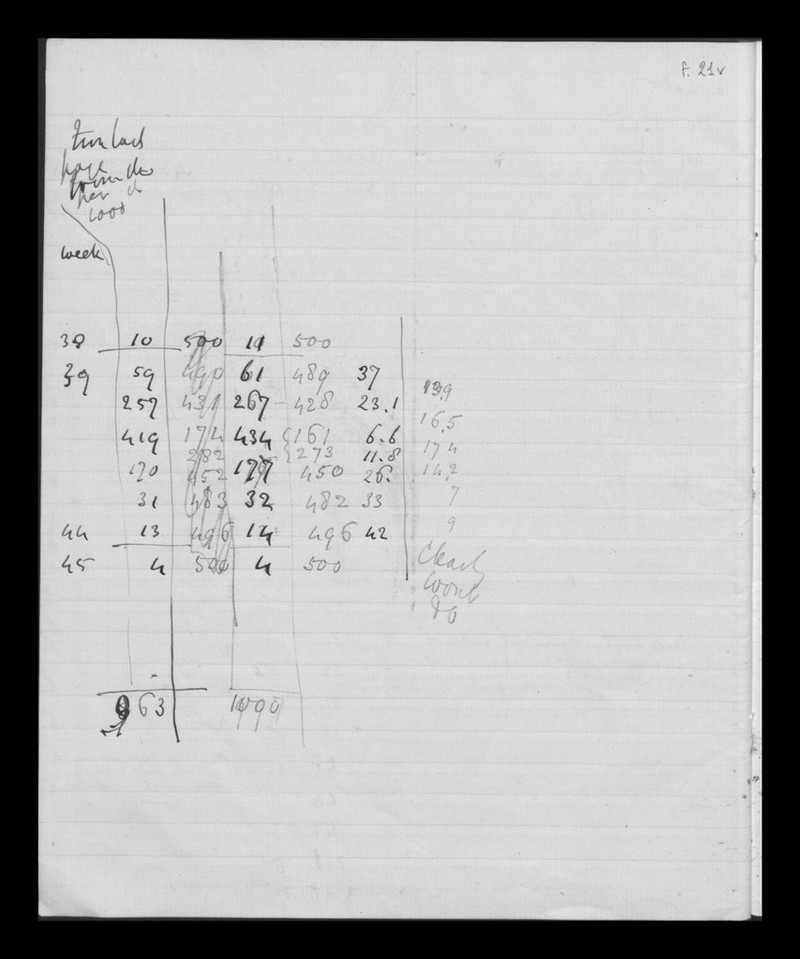 f. 21v
per
1000
week
38 10 500 11 500
39 59 490 61 489 37
13.9
257 431 267 428 23.1
16.5
419 174 434 161 6.6
282 273 11.8
17.4
170 452 177 450 26.
14.2
31 483 32 482 33
7
44 13 496 14 496 42
9
45 4 500 4 500
Chart
wont
do
963 1000